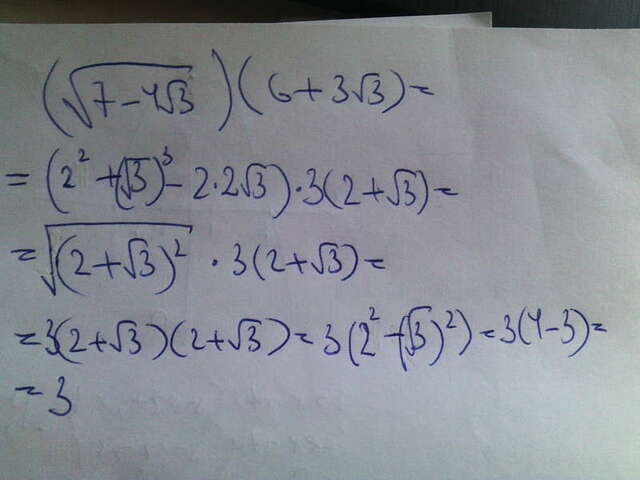 (√7-4√3)(6+3√3)=
=(2²+(√3)³-2·2√3)·3(2+√3)=
=√(2+√3)²·3(2+√3)=
=3(2+√3)(2+√3)=3(2²-(√3)²)=3(4-3)=
=3